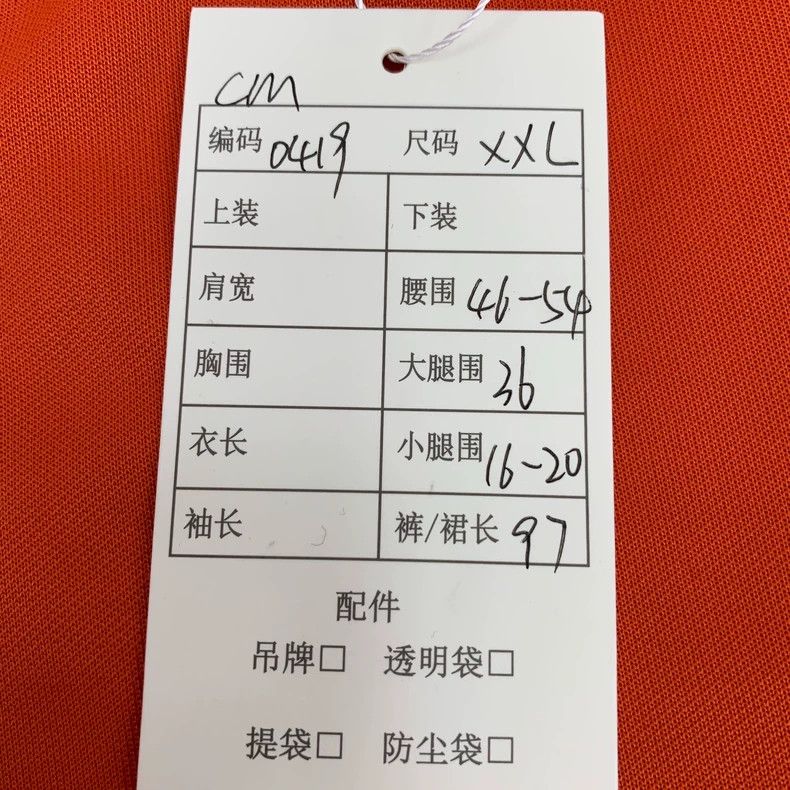 CM
编码 0419 尺码 XXL
上装 下装
肩宽 腰围 46-54
胸围 大腿围 36
衣长 小腿围 16-20
袖长 裤/裙长 97
配件
吊牌□ 透明袋□
提袋□ 防尘袋□